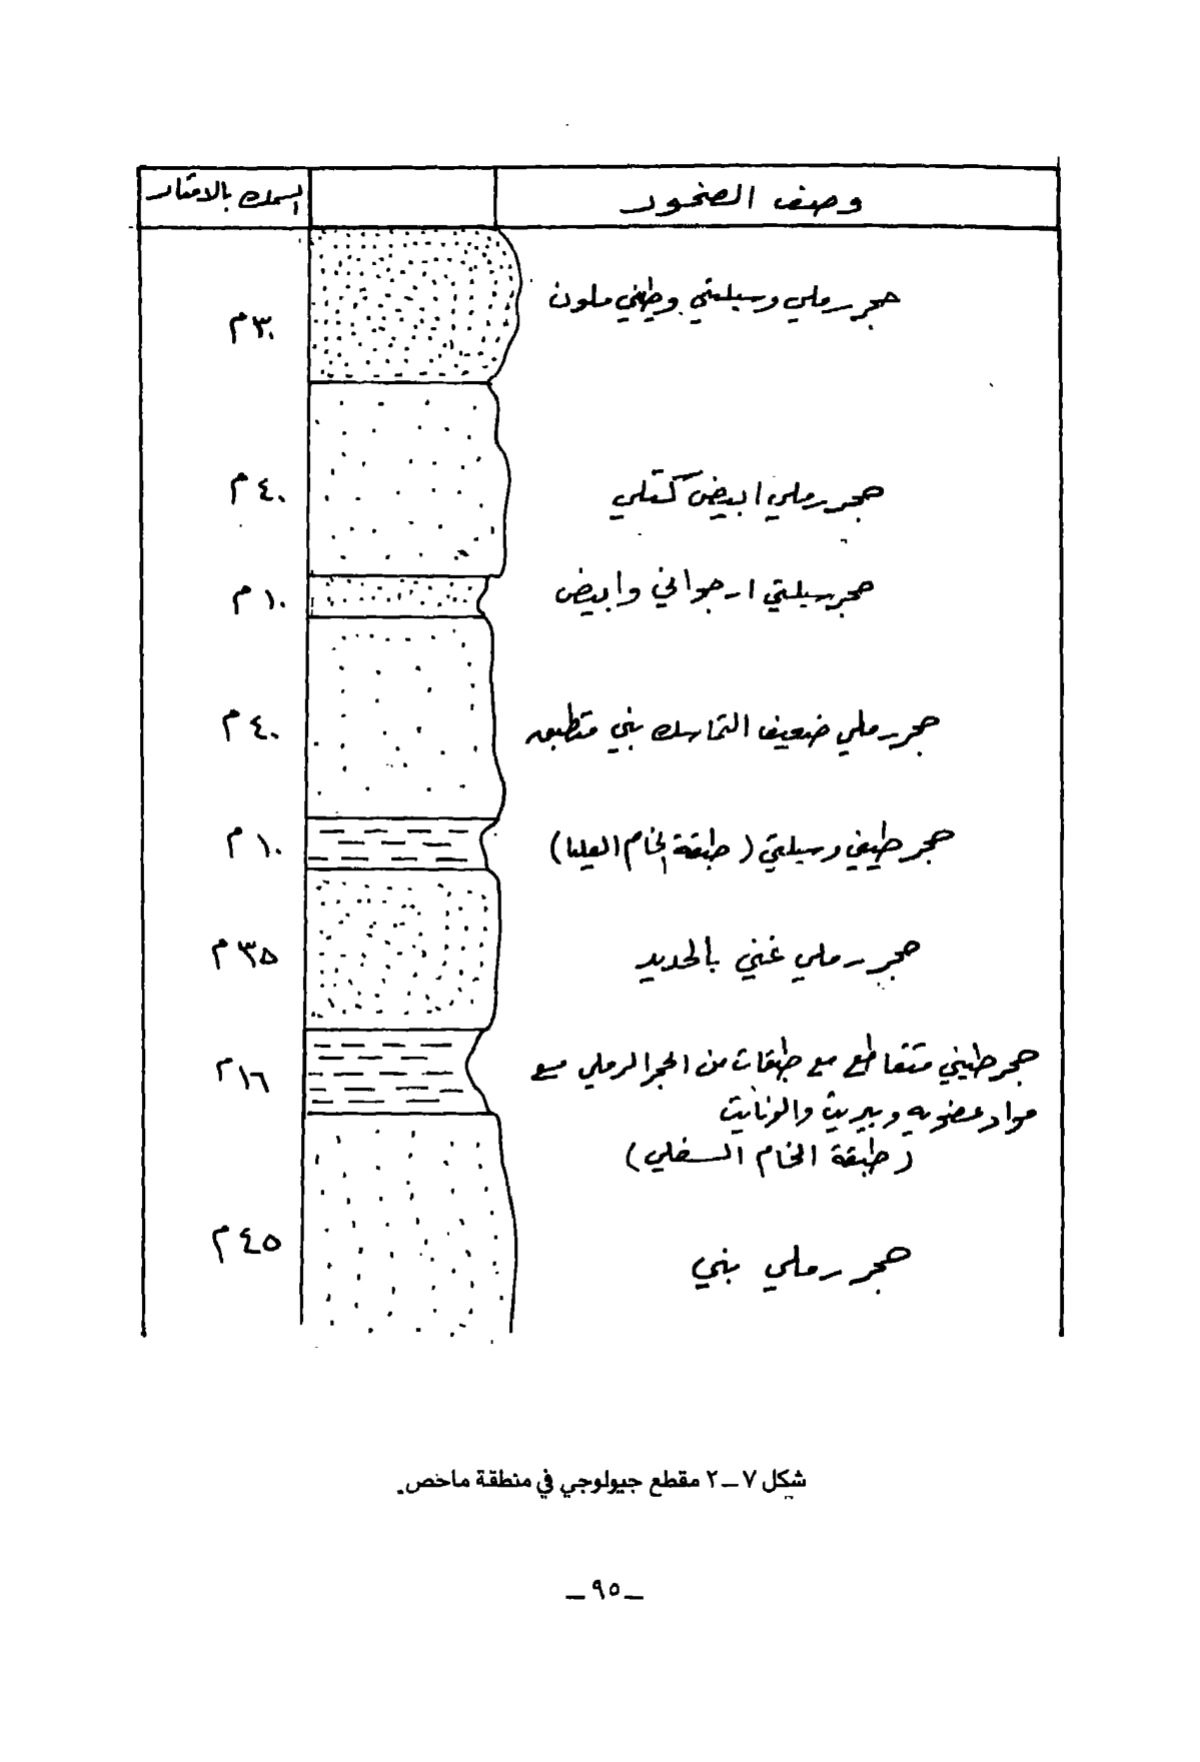 وصف الصخور
السمك بالامتار
حجر رملي وسيلتي وطيني ملون
٣٠ م
حجر رملي ابيض كتلي
٤٠ م
حجر سيلتي ارجواني وابيض
١٠ م
حجر رملي ضعيف التماسك بني متطبق
٤٠ م
حجر طيني وسيلتي (طبقة الخام العليا)
١٠ م
حجر رملي غني بالحديد
٣٥ م
حجر طيني متقاطع مع طبقات من الحجر الرملي مع
مواد عضويه وبيريت والونايت
(طبقة الخام السفلي)
١٦ م
حجر رملي بني
٤٥ م
شكل ٧ــ٢ مقطع جيولوجي في منطقة ماخص.
ــ ٩٥ ــ